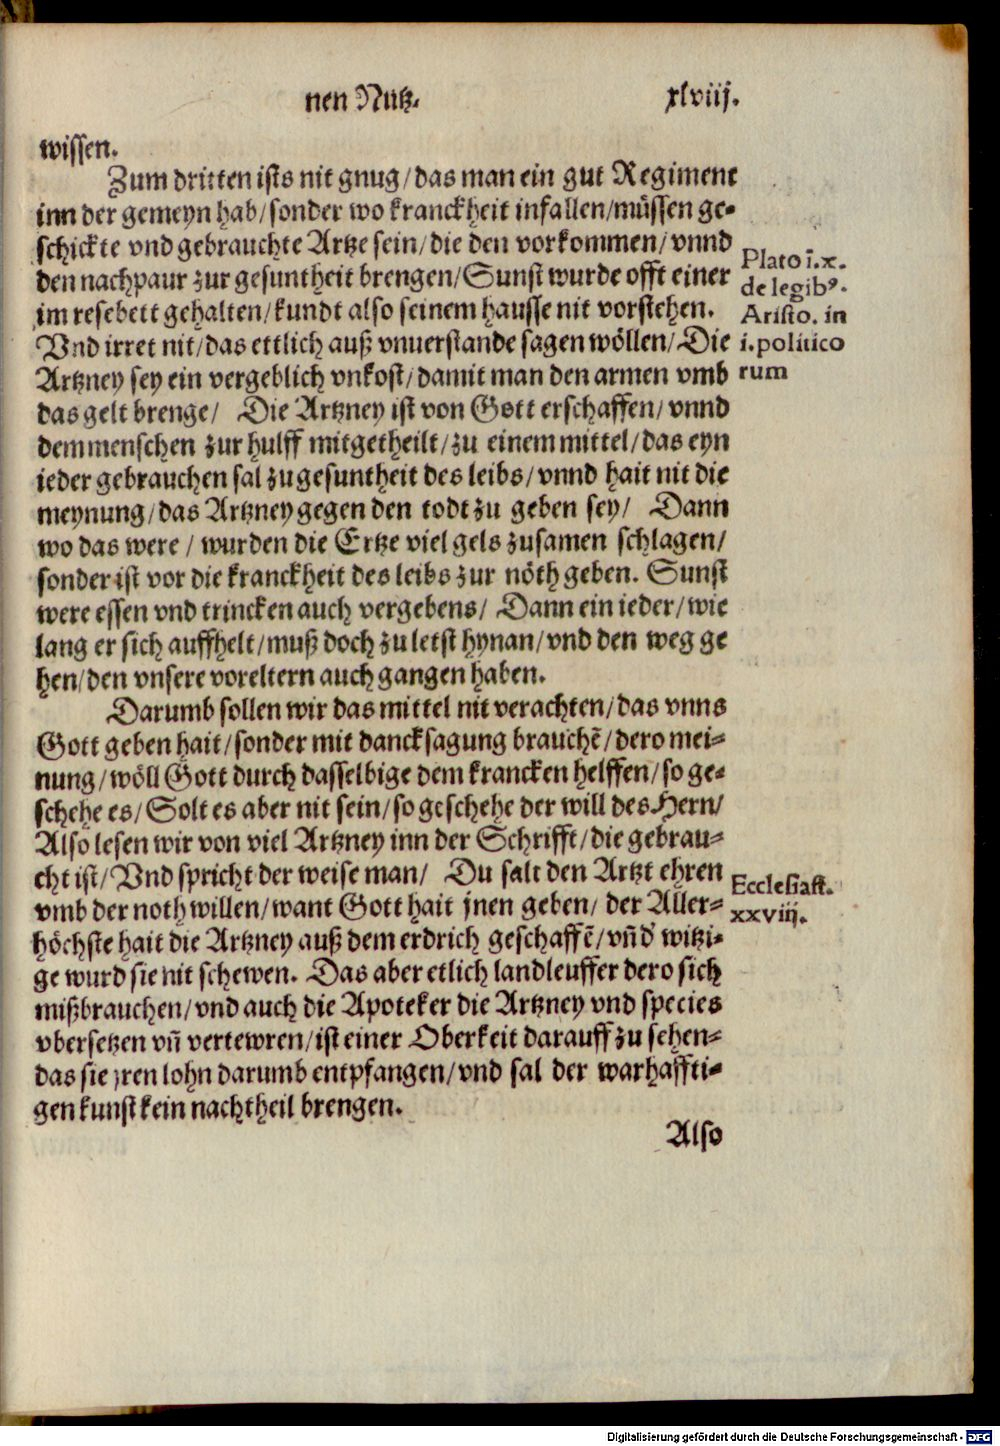 nen Nutz. xlviij.
wissen.
Zum dritten ists nit gnug/das man ein gut Regiment
inn der gemeyn hab/sonder wo kranckheit infallen/müssen ge-
schickte vnd gebrauchte Artze sein/die den vorkommen/vnnd
den nachpaur zur gesuntheit brengen/Sunst wurde offt einer
im resebett gehalten/kundt also seinem hausse nit vorstehen.
Plato ī. x.
de legibꝰ.
Aristo. in
i. politico
rum
Vnd irret nit/das ettlich auß vnuerstande sagen wöllen/Die
Artzney sey ein vergeblich vnkost/damit man den armen vmb
das gelt brenge/ Die Artzney ist von Gott erschaffen/vnnd
dem menschen zur hulff mitgetheilt/zu einem mittel/das eyn
ieder gebrauchen sal zu gesuntheit des leibs/vnnd hait nit die
meynung/das Artzney gegen den todt zu geben sey/ Dann
wo das were/wurden die Ertze viel gels zusamen schlagen/
sonder ist vor die kranckheit des leibs zur nöth geben. Sunst
were essen vnd trincken auch vergebens/ Dann ein ieder/wie
lang er sich auffhelt/muß doch zu letst hynan/vnd den weg ge
hen/den vnsere voreltern auch gangen haben.
Darumb sollen wir das mittel nit verachten/das vnns
Gott geben hait/sonder mit dancksagung brauchē/dero mei-
nung/wöll Gott durch dasselbige dem krancken helffen/so ge-
schehe es/Solt es aber nit sein/so geschehe der will des Hern/
Also lesen wir von viel Artzney inn der Schrifft/die gebrau-
cht ist/Vnd spricht der weise man/ Du salt den Artzt ehren
vmb der noth willen/want Gott hait jnen geben/der Aller-
Ecclesiast.
xxviij.
höchste hait die Artzney auß dem erdrich geschaffē/vñd witzi-
ge wurd sie nit schewen. Das aber etlich landleuffer dero sich
mißbrauchen/vnd auch die Apoteker die Artzney vnd species
vbersetzen vñ vertewren/ist einer Oberkeit darauff zu sehen-
das sie jren lohn darumb entpfangen/vnd sal der warhaffti-
gen kunst kein nachtheil brengen.
Also
Digitalisierung gefördert durch die Deutsche Forschungsgemeinschaft - DFG